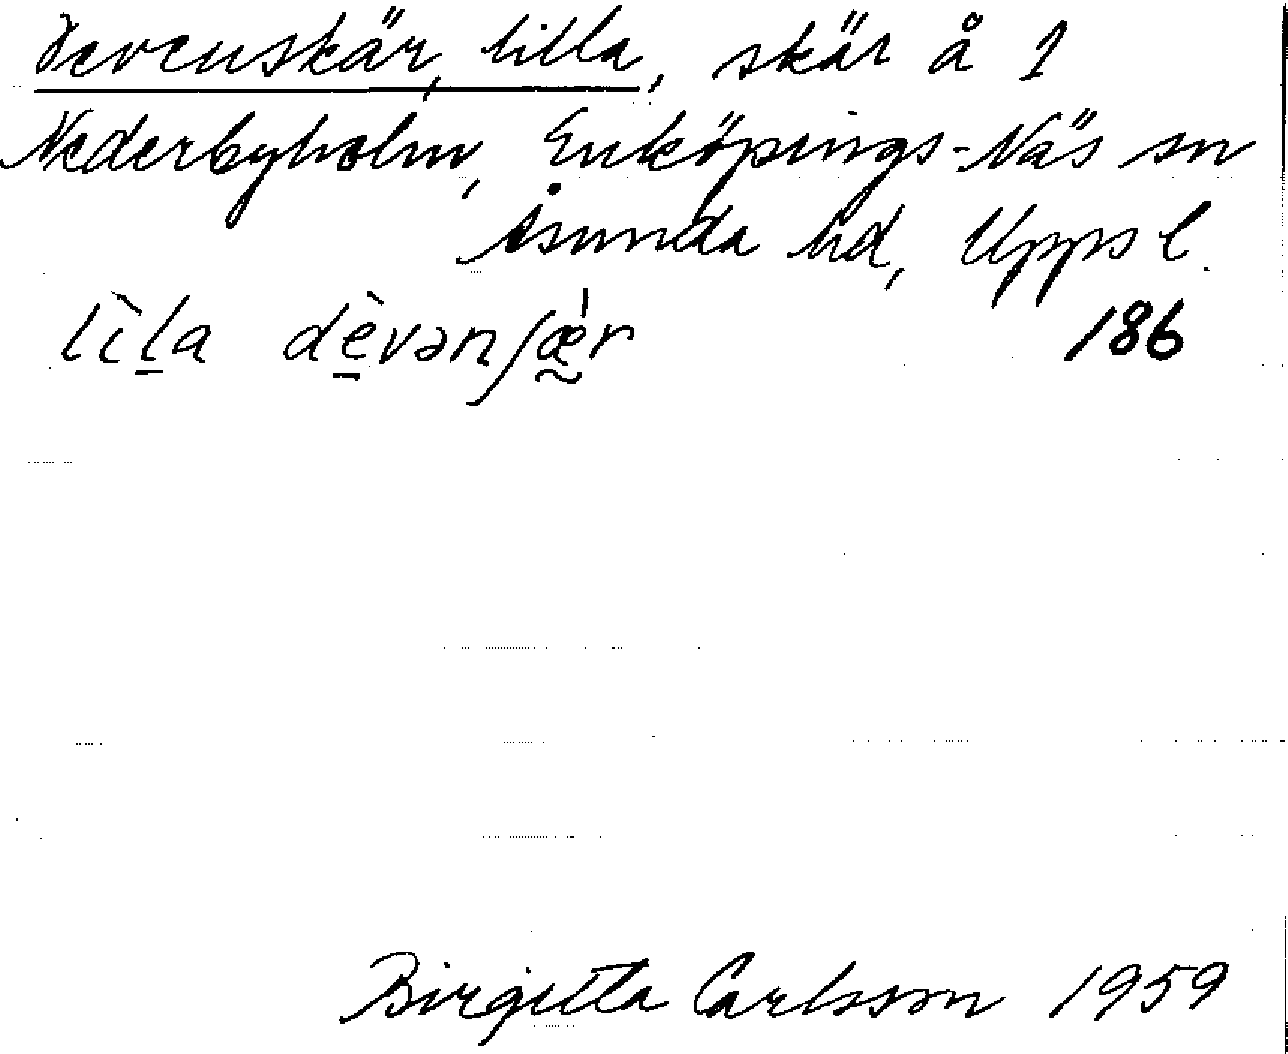 Devenskär, lilla, skär å 1
Nederbyholm, Enköpings-Näs sn
Åsunda hd, Upps l.
lìla dèvənʃæ̀r 186
Birgitta Carlsson 1959